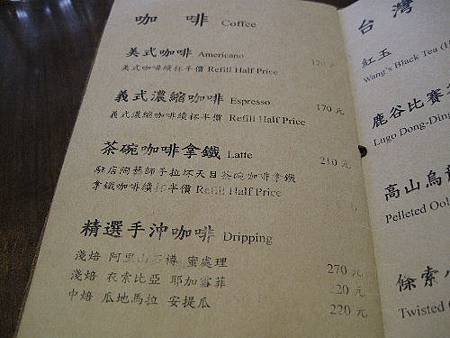 咖啡 Coffee
美式咖啡 Americano 170元
美式咖啡續杯半價 Refill Half Price
義式濃縮咖啡 Espresso 170元
義式濃縮咖啡續杯半價 Refill Half Price
茶碗咖啡拿鐵 Latte 210元
廢店陶藝師手拉坏天目茶碗咖啡拿鐵
拿鐵咖啡續杯半價 Refill Half Price
精選手沖咖啡 Dripping
淺焙 阿里山 蜜處理 270元
淺焙 衣索比亞 耶加雪菲 20元
中焙 瓜地馬拉 安提瓜 220元
台灣
紅玉
Wang's Black Tea
鹿谷比賽
Lugo Dong-Ding
高山烏龍
Pelleted Ool
條索
Twisted